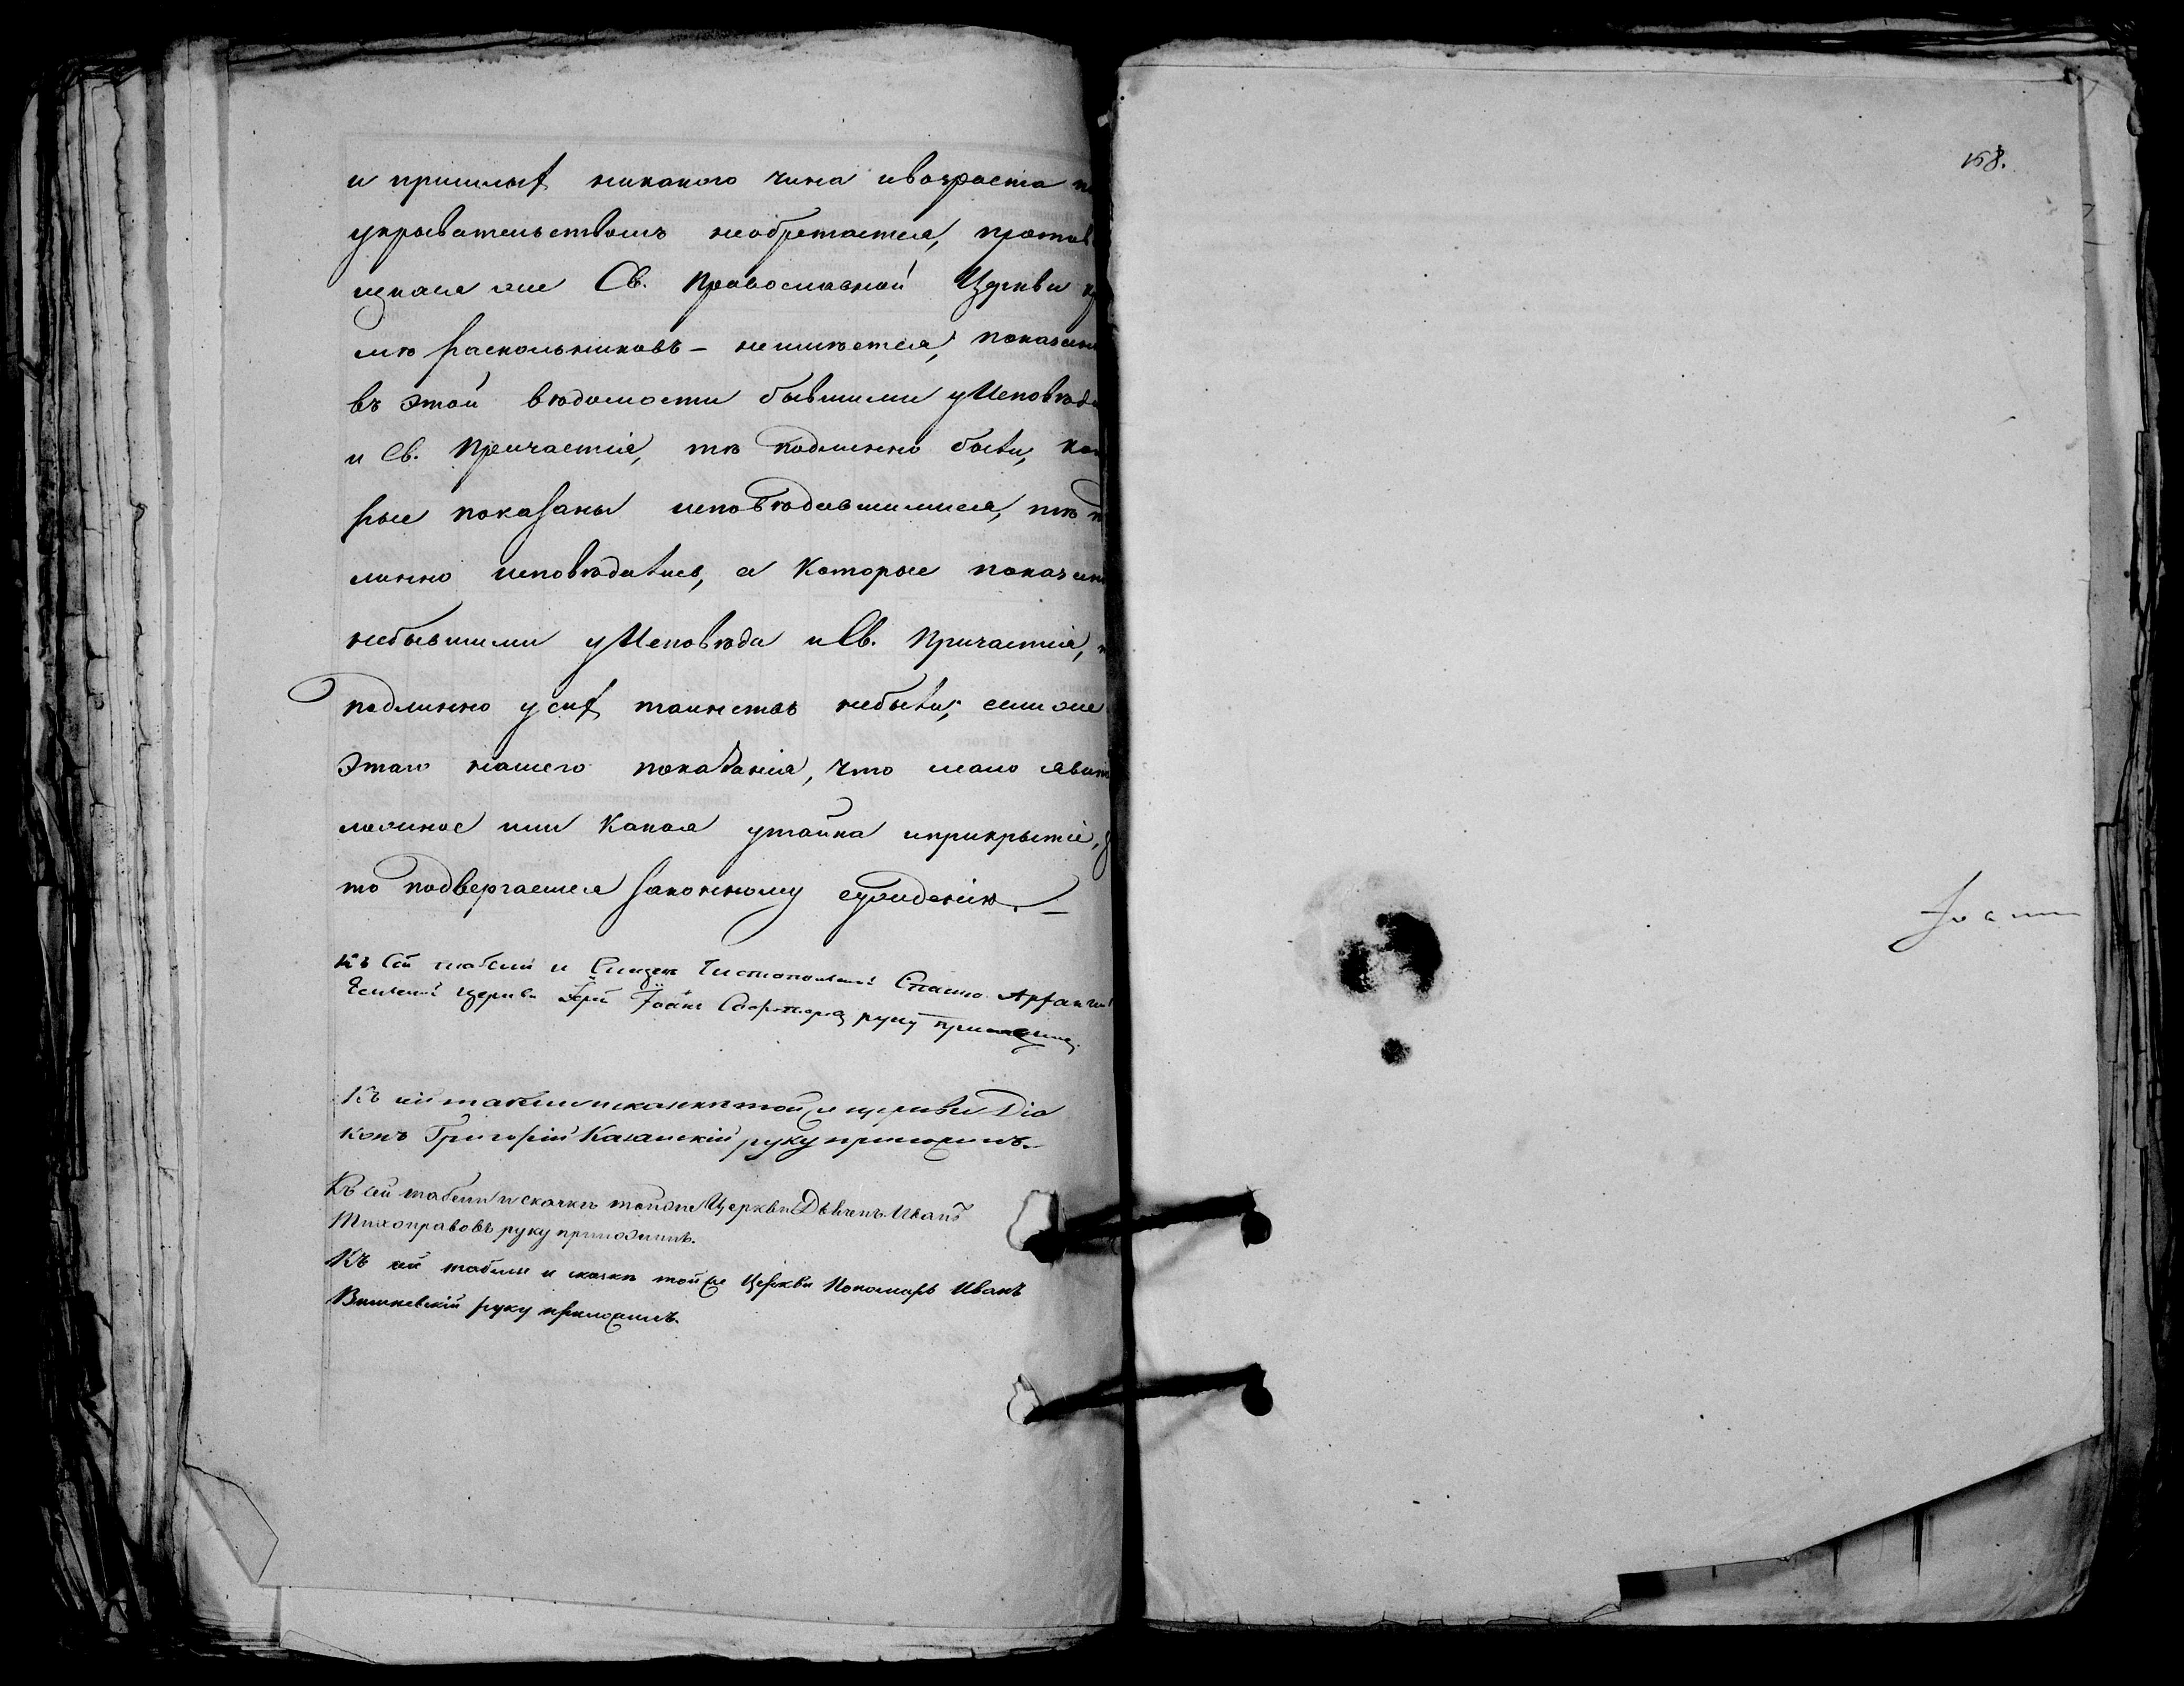 и пришлыхъ никакого чина и возраста
укрывательствомъ необретается, против
щихся же Св. Православной Церкви
мѣ раскольниковъ - неимѣется, показан
въ этой вѣдомости бывшими у Исповѣди
и Св. Причастія, тѣ подлинно были, кот
рые показаны исповѣдавшимися, тѣ п
линно исповѣдались, а которые показан
небывшими у Исповѣда и Св. Причастія,
подлинно у сихъ таинствъ небыли; если же
этаго нашего показанія, что мало явит
ложное или какая утайка и прикрытіе,
то подвергаемся законному сужденію. -
Къ сей табели и Чистопольской Спасо Арханг
церкви Іерей Іоаннъ руку приложилъ.
Къ сей табели и сказкѣ той же церкви Діа
конъ Григорій Казанскій руку приложилъ.
Къ сей табели и сказкѣ той же Церкви Дьячекъ Иванъ
Тихонравовъ руку приложилъ.
Къ сей табели и сказкѣ той же Церкви Пономарь Иванъ
Вишневскій руку приложилъ.
158.
Іоанн